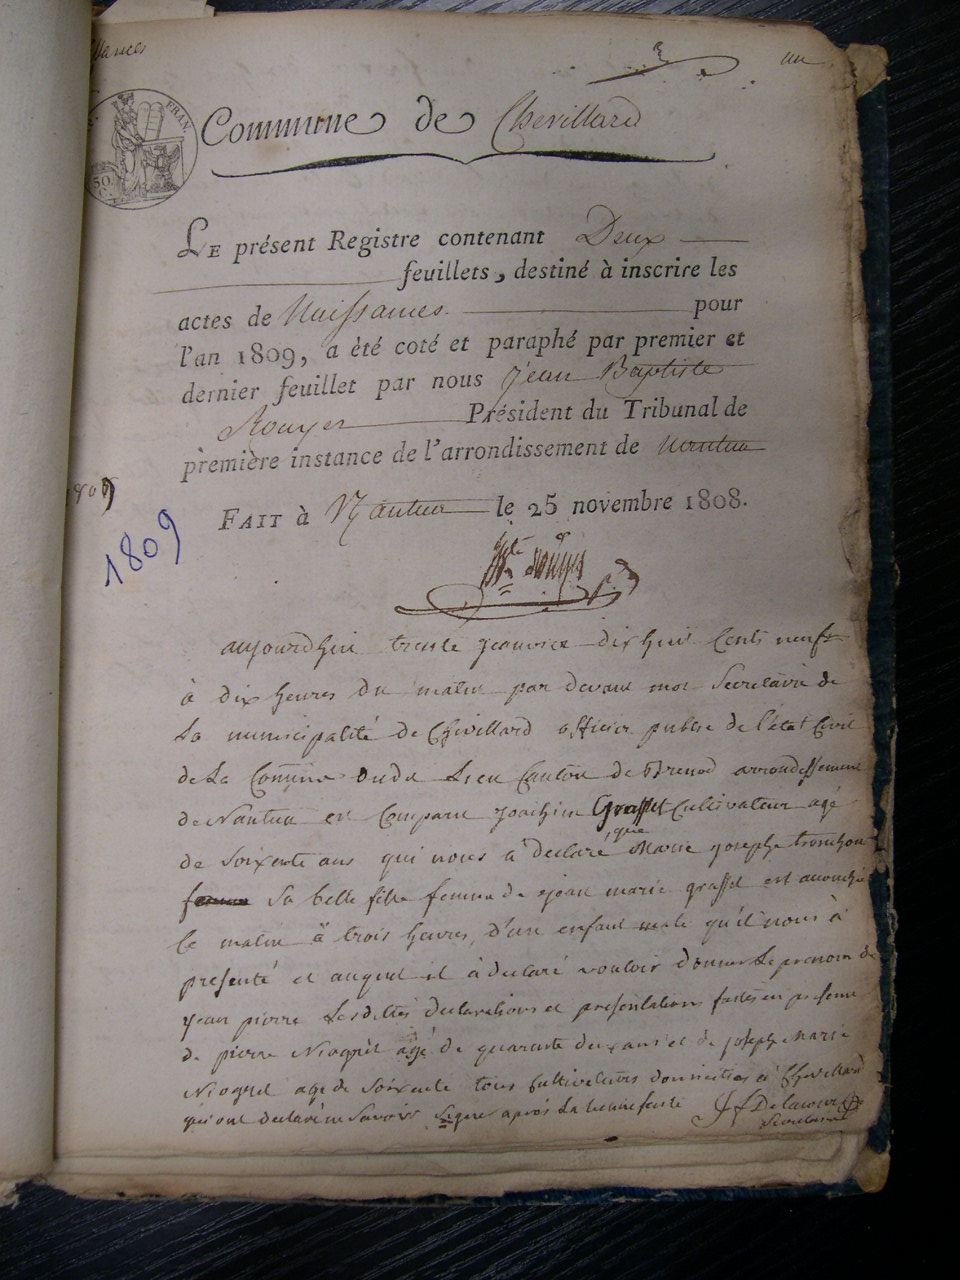 un
FRAN
50
C.
Commune de Chevillard
LE présent Registre contenant Deux
feuillets, destiné à inscrire les
actes de Naissances pour
l'an 1809, a été coté et paraphé par premier et
dernier feuillet par nous jean Baptiste
Rouyer Président du Tribunal de
première instance de l'arrondissement de nantua
1809
FAIT à Nantua le 25 novembre 1808.
1809
aujourdhui trente janvier dix huit Cents neuf
à dix heures du matin par devant moi Secretaire de
La municipalité de Chevillard officier public de l'état Civil
de La Commune dudit Lieu Canton de Brenod arrondissement
de Nantua est Comparu joachim Grasset Cultivateur agé
de Soixente ans qui nous a declaré que Marie josephe tronchon
femme Sa belle fille femme de jean marie grasset est accouchée
le matin à trois heures, d'un enfant male qu'il nous à
presenté et auquel il à declaré vouloir donner Le prenom de
jean pierre Lesdittes declarations et presentations faites en presence
de pierre Niogret agé de quarante deux ans et de josephe marie
Niogret agé de Soixente tous Cultivateurs domiciliés à Chevillard
qui ont declaré ne Savoir Signer après La lecture faite J f Delacour
Secretaire